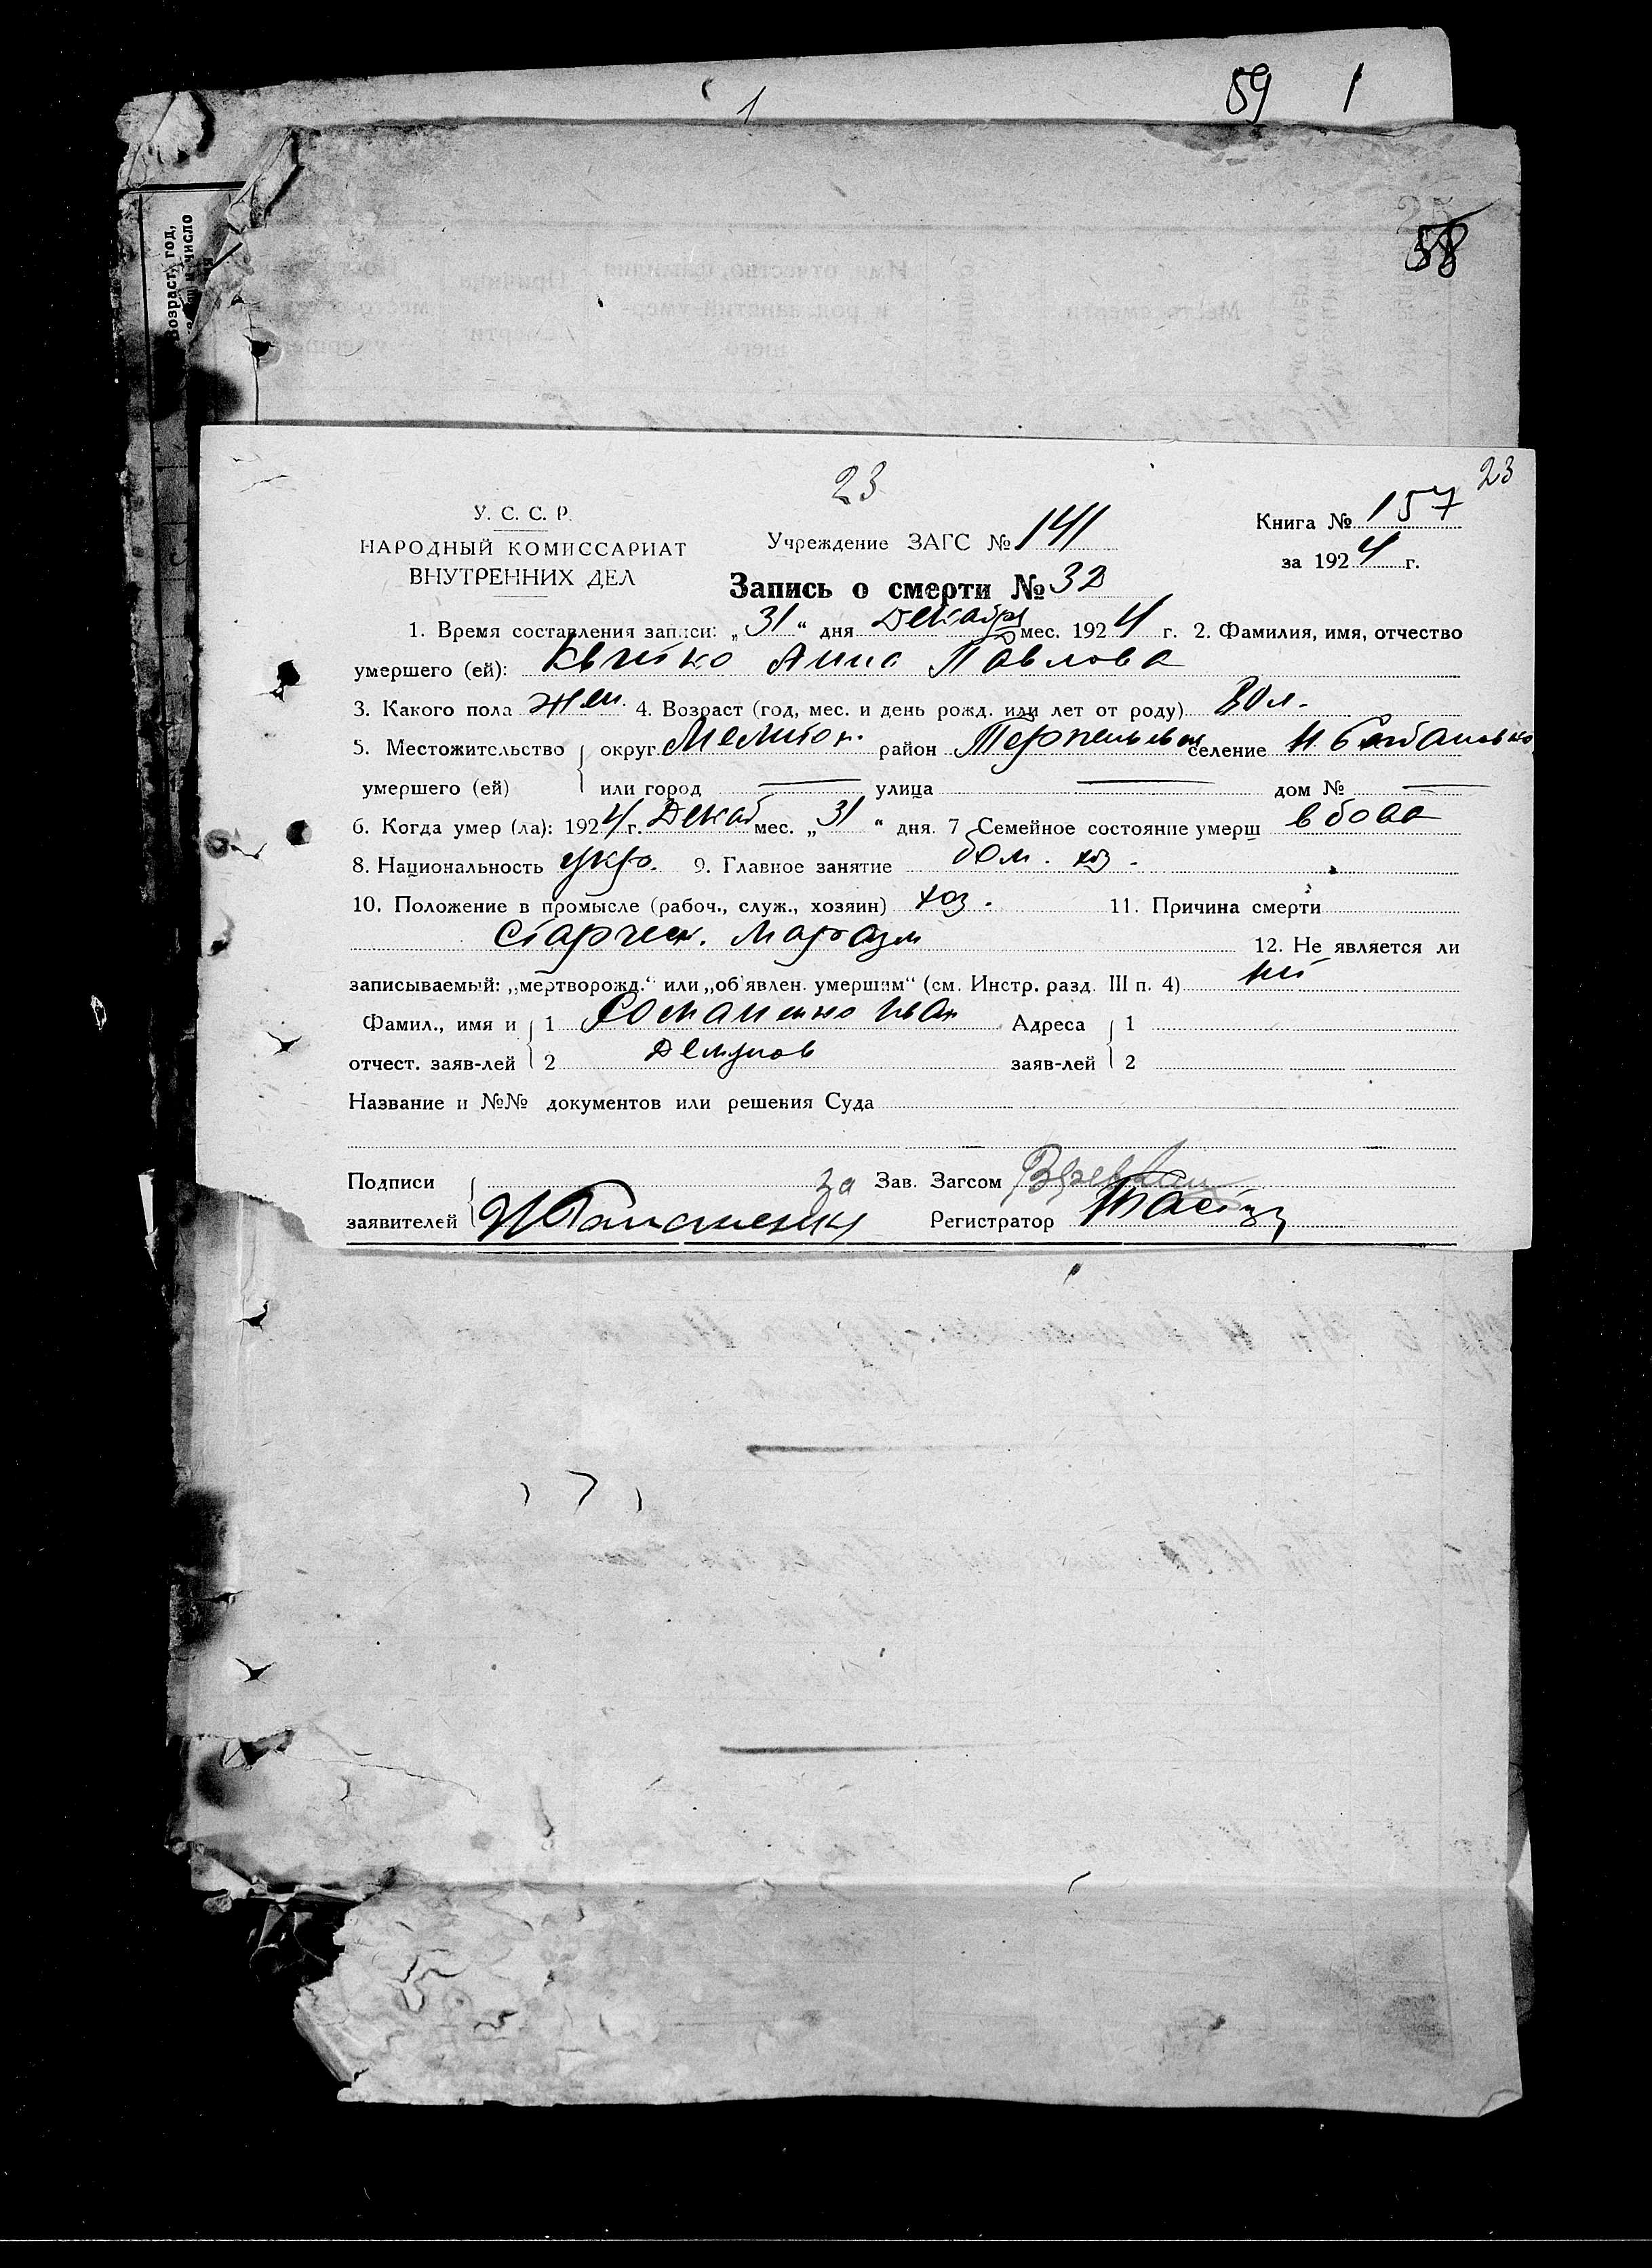 1
59 1
58
Возраст, год,
число
23
23
У. С. С. Р.
НАРОДНЫЙ КОМИССАРИАТ
ВНУТРЕННИХ ДЕЛ
Учреждение ЗАГС № 141
Книга № 157
за 1924 г.
Запись о смерти № 32
1. Время составления записи: „31“ дня Декабря мес. 1924 г. 2. Фамилия, имя, отчество
умершего (ей): Квитко Анна Павлова
3. Какого пола жен. 4. Возраст (год, мес. и день рожд. или лет от роду) 80 л.
5. Местожительство округ Мелитоп. район Терпеньевск селение Н Богдановка
умершего (ей) или город — улица — дом № —
6. Когда умер (ла): 1924 г. Декаб мес. „31“ дня. 7 Семейное состояние умерш вдова
8. Национальность укр. 9. Главное занятие дом. хоз.
10. Положение в промысле (рабоч., служ., хозяин) хоз. 11. Причина смерти
старческ. маразм 12. Не является ли
записываемый: „мертворожд.“ или „об'явлен. умершим“ (см. Инстр. разд. III п. 4) нет
Фамил., имя и 1 Романенко Иван Адреса 1
отчест. заяв-лей 2 заяв-лей 2
Название и №№ документов или решения Суда
Подписи за Зав. Загсом
заявителей И Романенко Регистратор